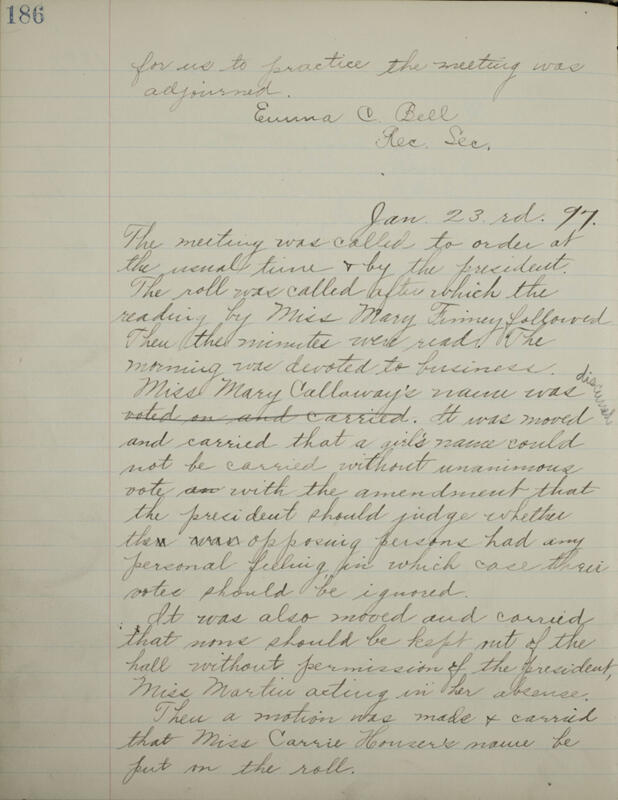 186
for us to practice the meeting was
adjourned.
Emma C. Bell
Rec. Sec.
Jan. 23 rd. 97.
The meeting was called to order at
the usual time & by the president.
The roll was called after which the
reading by Miss Mary Finney followed
Then the minutes were read. The
morning was devoted to business.
Miss Mary Callaway's name was discussed
voted on and carried. It was moved
and carried that a girl's name could
not be carried without unanimous
vote an with the amendment that
the president should judge whether
the was opposing persons had any
personal feeling in which case their
votes should be ignored.
It was also moved and carried
that none should be kept out of the
hall without permission of the president,
Miss Martin acting in her absense.
Then a motion was made & carried
that Miss Carrie Houser's name be
put on the roll.